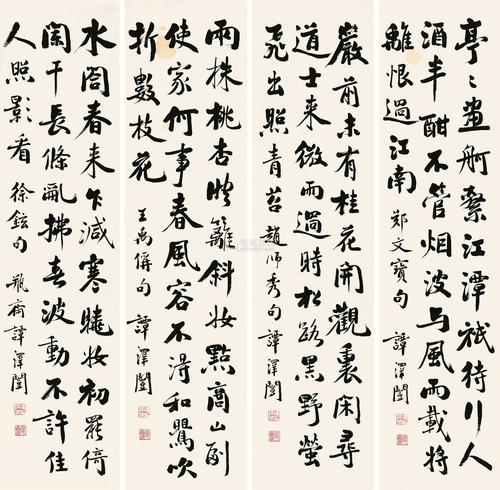 亭〻畫舸繫江潭祇待行人
酒半酣不管烟波与風雨載將
離恨過江南 鄭文寶句 譚澤闓
巖前未有桂花開觀裏閑尋
道士来微雨過時松路黑野螢
飛出照青苔 趙师秀句 譚澤闓
兩株桃杏映籬斜妝點商山副
使家何事春風容不得和鶯吹
折數枝花 王禹偁句 譚澤闓
水閣春来乍減寒曉妝初罷倚
闌干長條亂拂春波動不許佳
人照影看 徐鉉句 瓶齋譚澤闓